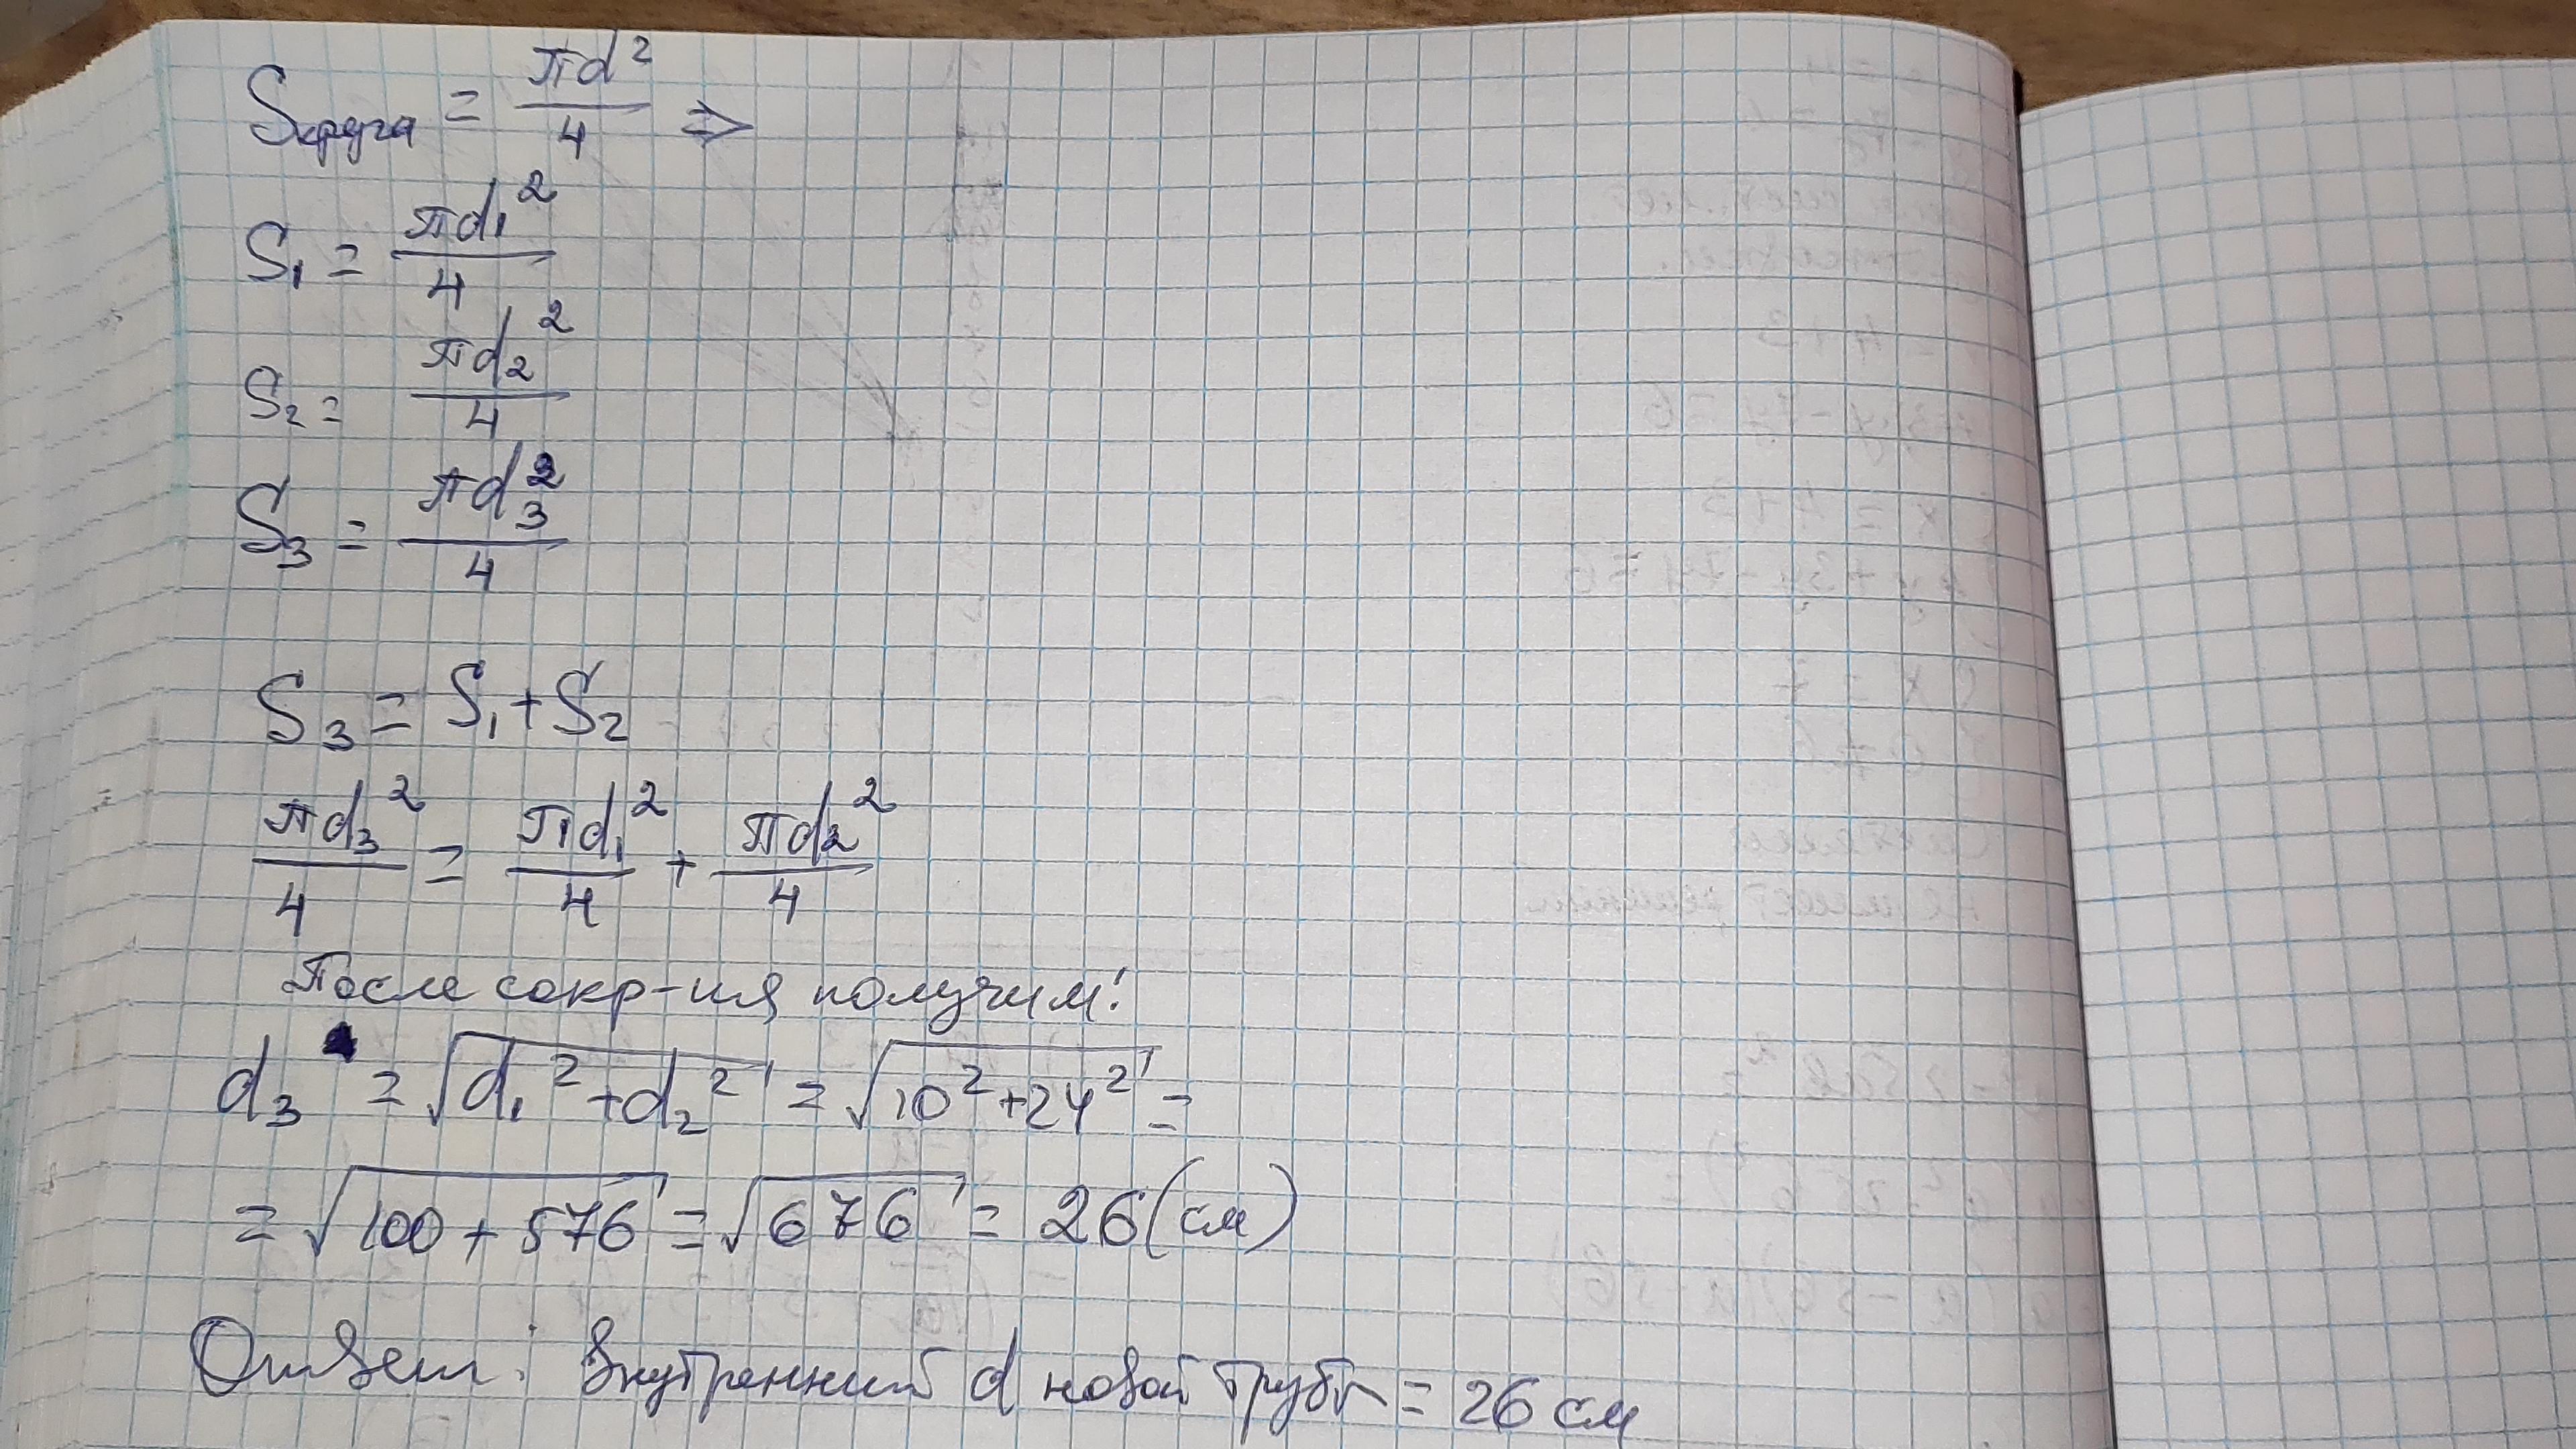 Sкруга = πd²/4 ⇒
S₁ = πd₁²/4
S₂ = πd₂²/4
S₃ = πd₃²/4
S₃ = S₁ + S₂
πd₃²/4 = πd₁²/4 + πd₂²/4
После сокр-ия получим:
d₃ = √(d₁² + d₂²) = √(10² + 24²) =
= √(100 + 576) = √676 = 26 (см)
Ответ: Внутренний d новой трубы = 26 см